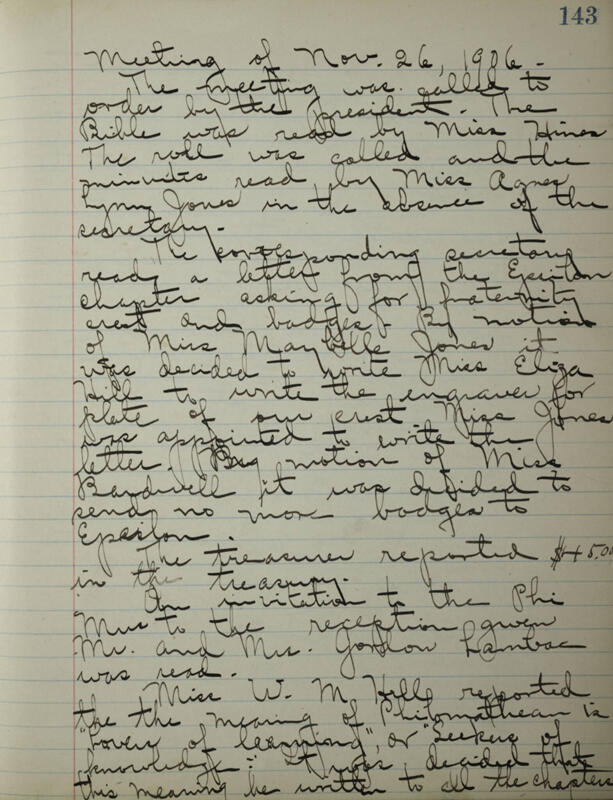 143
Meeting of Nov. 26, 1906.
The meeting was called to
order by the president. The
Bible was read by Miss Hines
The roll was called and the
minutes read by Miss Agnes
Lynn Jones in the absence of the
secretary.
The corresponding secretary
read a letter from the Epsilon
chapter asking for fraternity
crest and badges. By motion
of Miss Maybelle Jones it
was decided to write Miss Eliza
Hill to write the engraver for
plate of our crest Miss Jones
was appointed to write the
letter. By motion of Miss
Bardwell it was decided to
send no more badges to
Epsilon.
The treasurer reported $45.00
in the treasury.
An invitation to the Phi
Mus to the reception given
Mr. and Mrs. Gordon
was read.
Miss W. M. Hill reported
the the meaning of Philomathean is
"lovers of learning", or "Seekers of
knowledge". It was decided that
this meaning be written to all the chapters